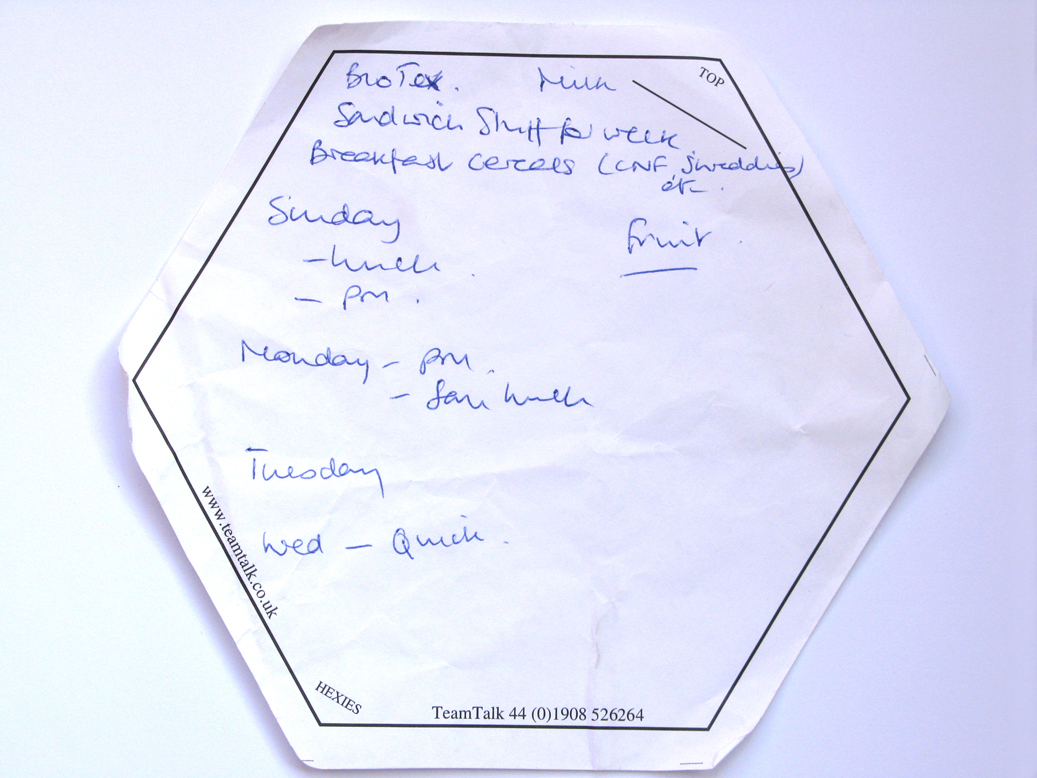 BioTex. Milk
TOP
Sandwich Stuff for week
Breakfast cereals (CNF, shreddies)
etc.
Sunday
Fruit
- lunch
- pm.
Monday - pm.
- lunch
Tuesday
Wed - Quick.
www.teamtalk.co.uk
HEXIES
TeamTalk 44 (0)1908 526264